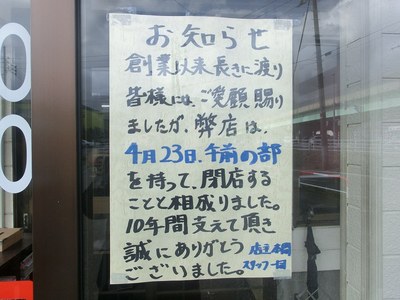 お知らせ
創業以来長きに渡り
皆様には、ご愛顧賜り
ましたが、弊店は、
4月23日、午前の部
を持って、閉店する
ことと相成りました。
10年間支えて頂き
誠にありがとう
ございました。
店主本間
スタッフ一同